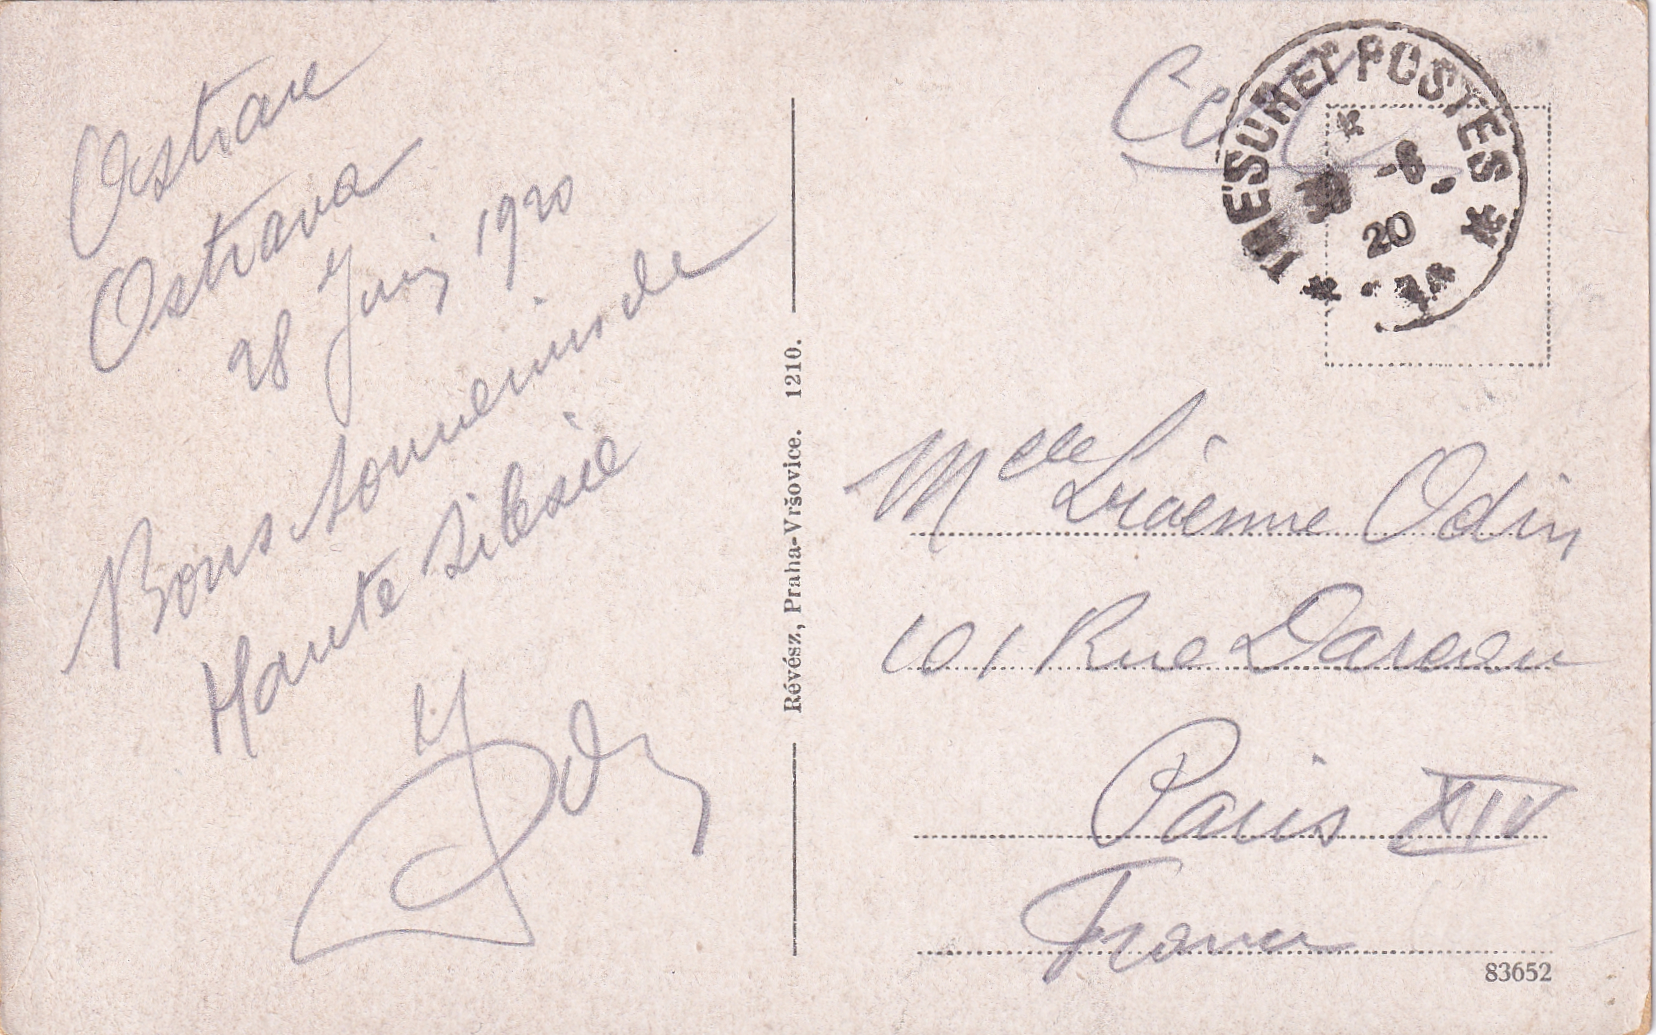 Ostrau
Ostrava
28 Juin 1920
Bons souvenirs de
Haute Silésie
Odin
Révész, Praha-Vršovice. 1210.
TRESOR ET POSTES
-6
20
Melle Odin
101 Rue Dareau
Paris XIV
France
83652